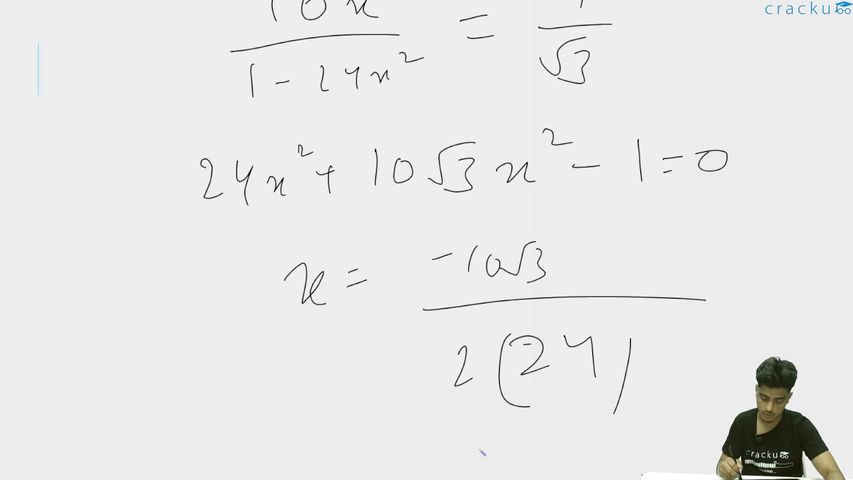 cracku
10x / 1 - 24x² = 1 / √3
24x² + 10√3 x² - 1 = 0
x = -10√3 / 2(24)
cracku